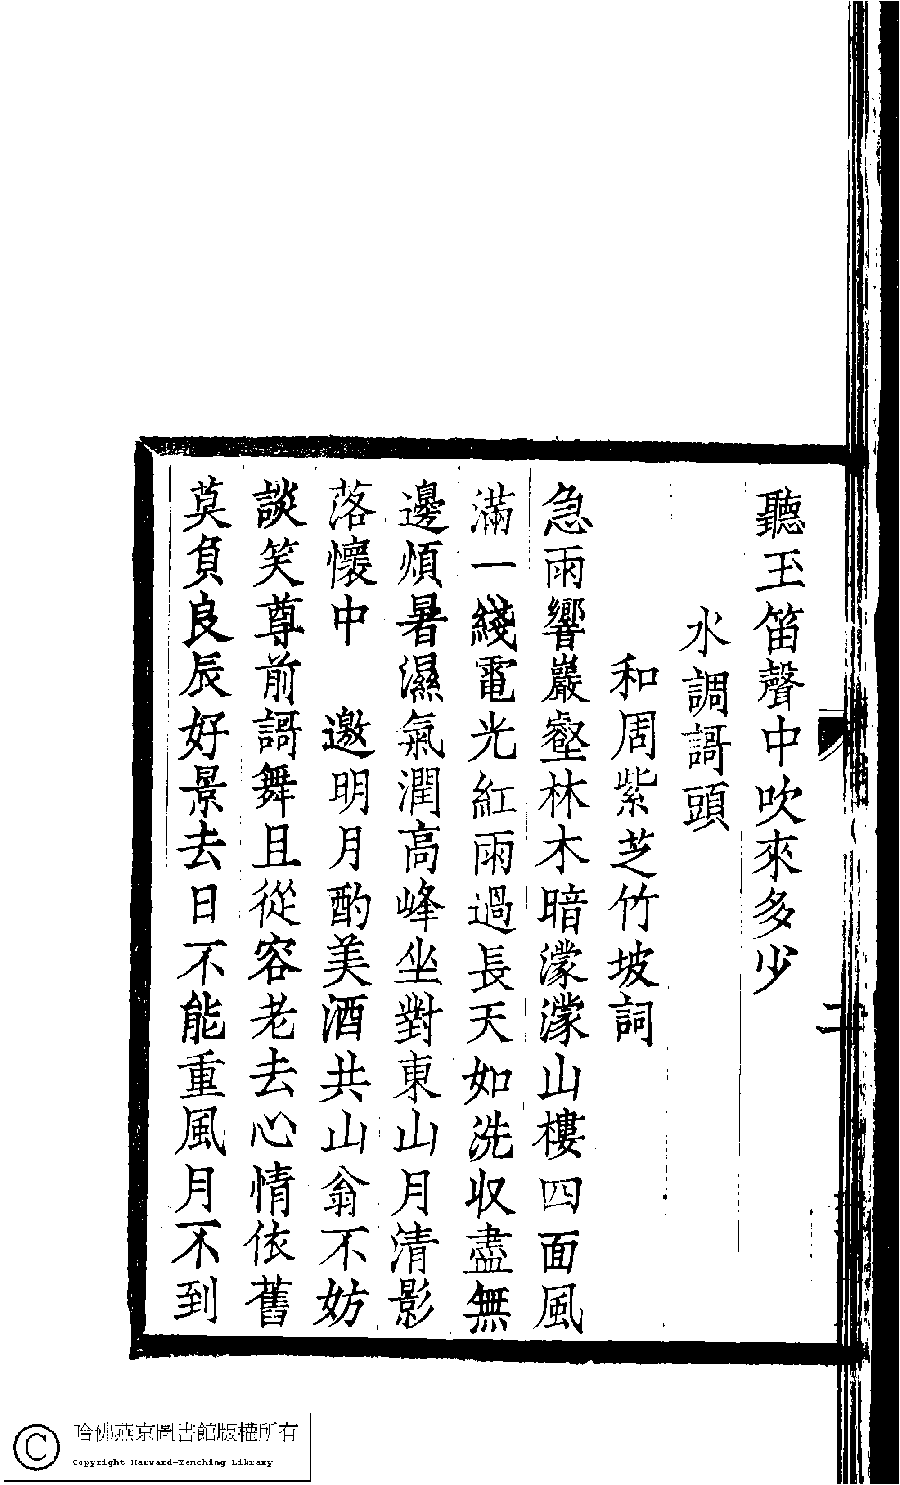 聽玉笛聲中吹來多少
水調謌頭
和周紫芝竹坡詞
急雨響巖壑林木暗濛濛山樓四面風
滿一綫電光紅雨過長天如洗收盡無
邊煩暑濕氣潤高峰坐對東山月清影
落懷中　邀明月酌美酒共山翁不妨
談笑尊前謌舞且從容老去心情依舊
莫負良辰好景去日不能重風月不到
二
哈佛燕京圖書館版權所有
Copyright Harvard-Yenching Library